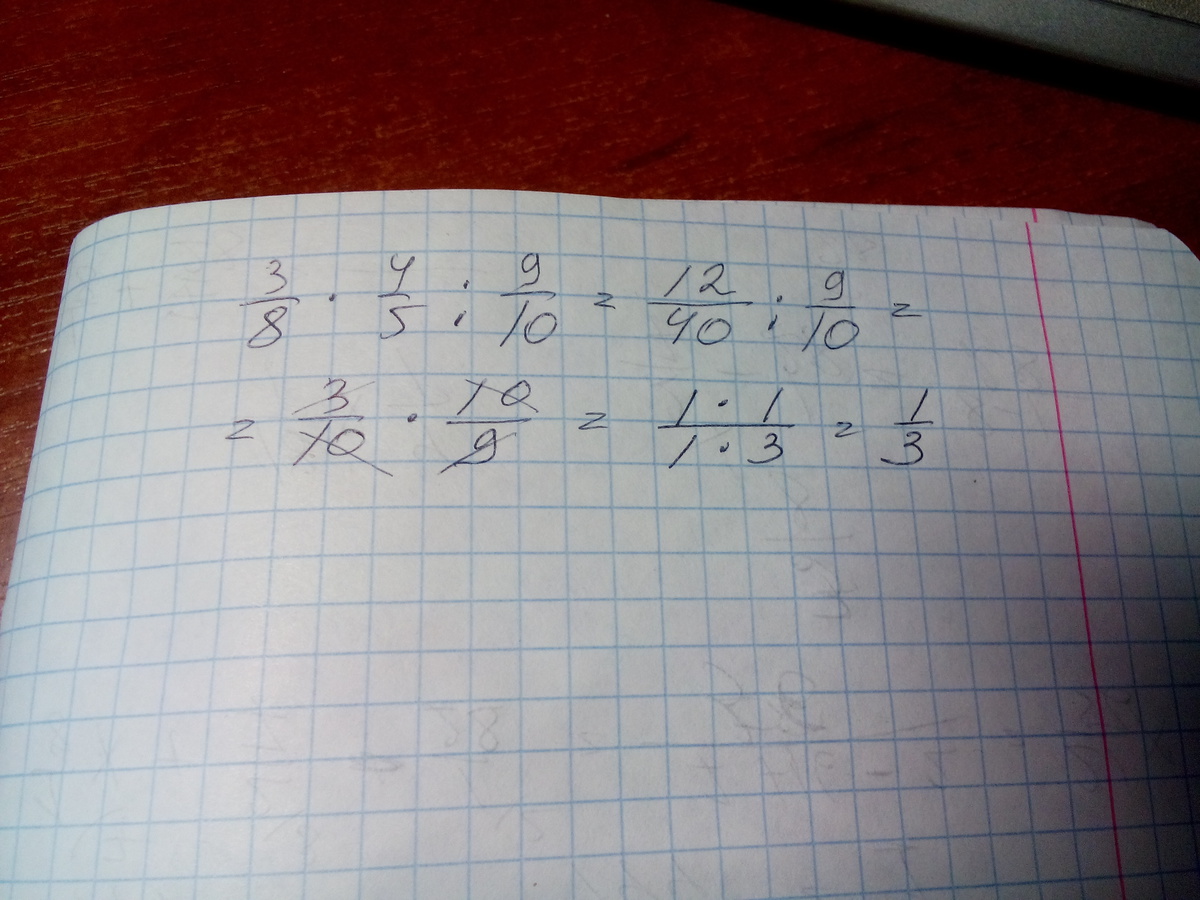 3/8 · 4/5 : 9/10 = 12/40 : 9/10 =
= 3/10 · 10/9 = 1·1/1·3 = 1/3